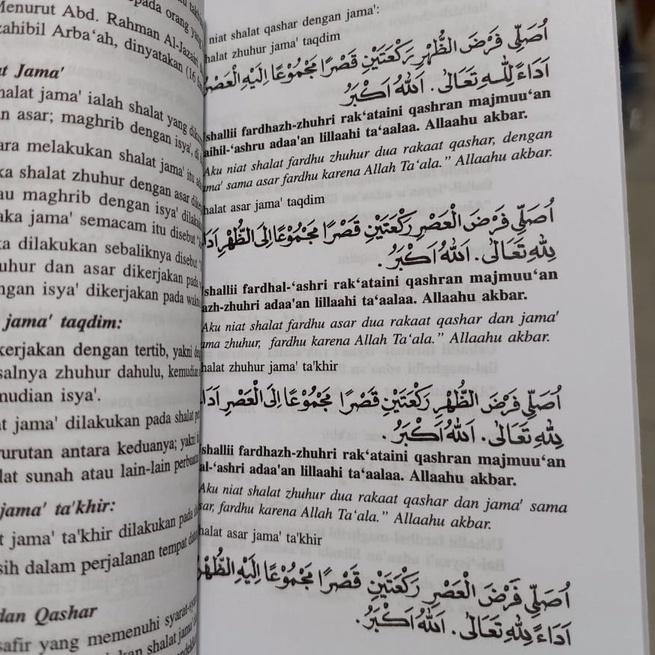 Menurut Abd. Rahman Al-Jazairi
zahibil Arba'ah, dinyatakan (16
Jama'
shalat jama' ialah shalat yang
asar; maghrib dengan isya',
melakukan shalat jama' itu
shalat zhuhur dengan asar
maghrib dengan isya'
jama' semacam itu disebut
dilakukan sebaliknya disebut
dan asar dikerjakan pada
isya' dikerjakan pada
jama' taqdim:
dengan tertib, yakni
zhuhur dahulu, kemudian
isya'.
jama' dilakukan pada shalat
antara keduanya; yakni
sunah atau lain-lain
jama' ta'khir:
jama' ta'khir dilakukan pada
dalam perjalanan tempat
dan Qashar
yang memenuhi
niat shalat qashar dengan jama':
shalat zhuhur jama' taqdim
اُصَلِّى فَرْضَ الظُّهْرِ رَكْعَتَيْنِ قَصْرًا مَجْمُوْعًا اِلَيْهِ الْعَصْرُ
اَدَاءً لِلّٰهِ تَعَالٰى. اَللهُ اَكْبَرُ
shallii fardhazh-zhuhri rak'ataini qashran majmuu'an
aihil-'ashru adaa'an lillaahi ta'aalaa. Allaahu akbar.
Aku niat shalat fardhu zhuhur dua rakaat qashar, dengan
jama' sama asar fardhu karena Allah Ta'ala." Allaahu akbar.
shalat asar jama' taqdim
اُصَلِّى فَرْضَ الْعَصْرِ رَكْعَتَيْنِ قَصْرًا مَجْمُوْعًا اِلَى الظُّهْرِ
لِلّٰهِ تَعَالٰى. اَللهُ اَكْبَرُ.
shallii fardhal-'ashri rak'ataini qashran majmuu'an
azh-zhuhri adaa'an lillaahi ta'aalaa. Allaahu akbar.
Aku niat shalat fardhu asar dua rakaat qashar dan jama'
zhuhur, fardhu karena Allah Ta'ala." Allaahu akbar.
shalat zhuhur jama' ta'khir
اُصَلِّى فَرْضَ الظُّهْرِ رَكْعَتَيْنِ قَصْرًا مَجْمُوْعًا اِلَى الْعَصْرِ
لِلّٰهِ تَعَالٰى. اَللهُ اَكْبَرُ.
shallii fardhazh-zhuhri rak'ataini qashran majmuu'an
al-'ashri adaa'an lillaahi ta'aalaa. Allaahu akbar.
Aku niat shalat zhuhur dua rakaat qashar dan jama' sama
fardhu karena Allah Ta'ala." Allaahu akbar.
shalat asar jama' ta'khir
اُصَلِّى فَرْضَ الْعَصْرِ رَكْعَتَيْنِ قَصْرًا مَجْمُوْعًا اِلَيْهِ الظُّهْرُ
اَدَاءً لِلّٰهِ تَعَالٰى. اَللهُ اَكْبَرُ.